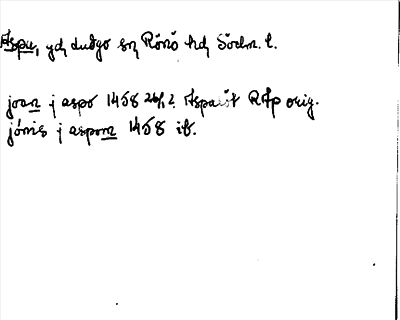 Aspu, yd, dudgo sn Rönö hd Södm. l.
joan j aspo 1458 26/2. Aspaäst RAp orig.
jönis j aspom 1458 ib.